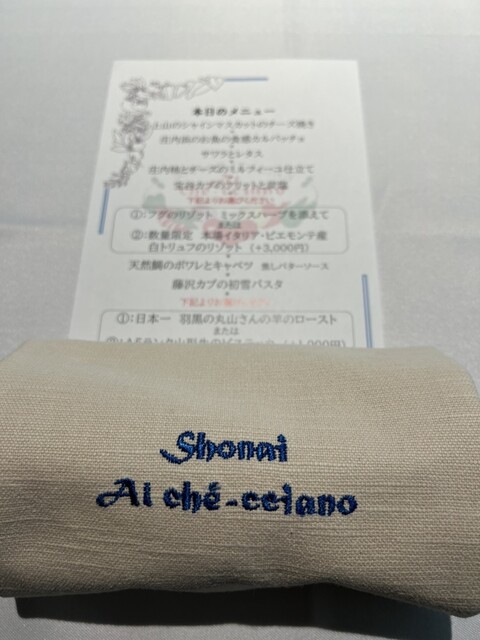 本日のメニュー
上山のシャインマスカットのチーズ焼き
庄内浜のお魚の食感カルパッチョ
サワラとレタス
庄内柿とチーズのミルフィーユ仕立て
宝谷カブのフリットと炭塩
下記よりお選びください
①:フグのリゾット ミックスハーブを添えて
または
②:数量限定 本場イタリア・ピエモンテ産
白トリュフのリゾット (+3,000円)
天然鯛のポワレとキャベツ 焦しバターソース
藤沢カブの初雪パスタ
下記よりお選びください
①:日本一 羽黒の丸山さんの羊のロースト
または
Shonai
Al ché-cciano